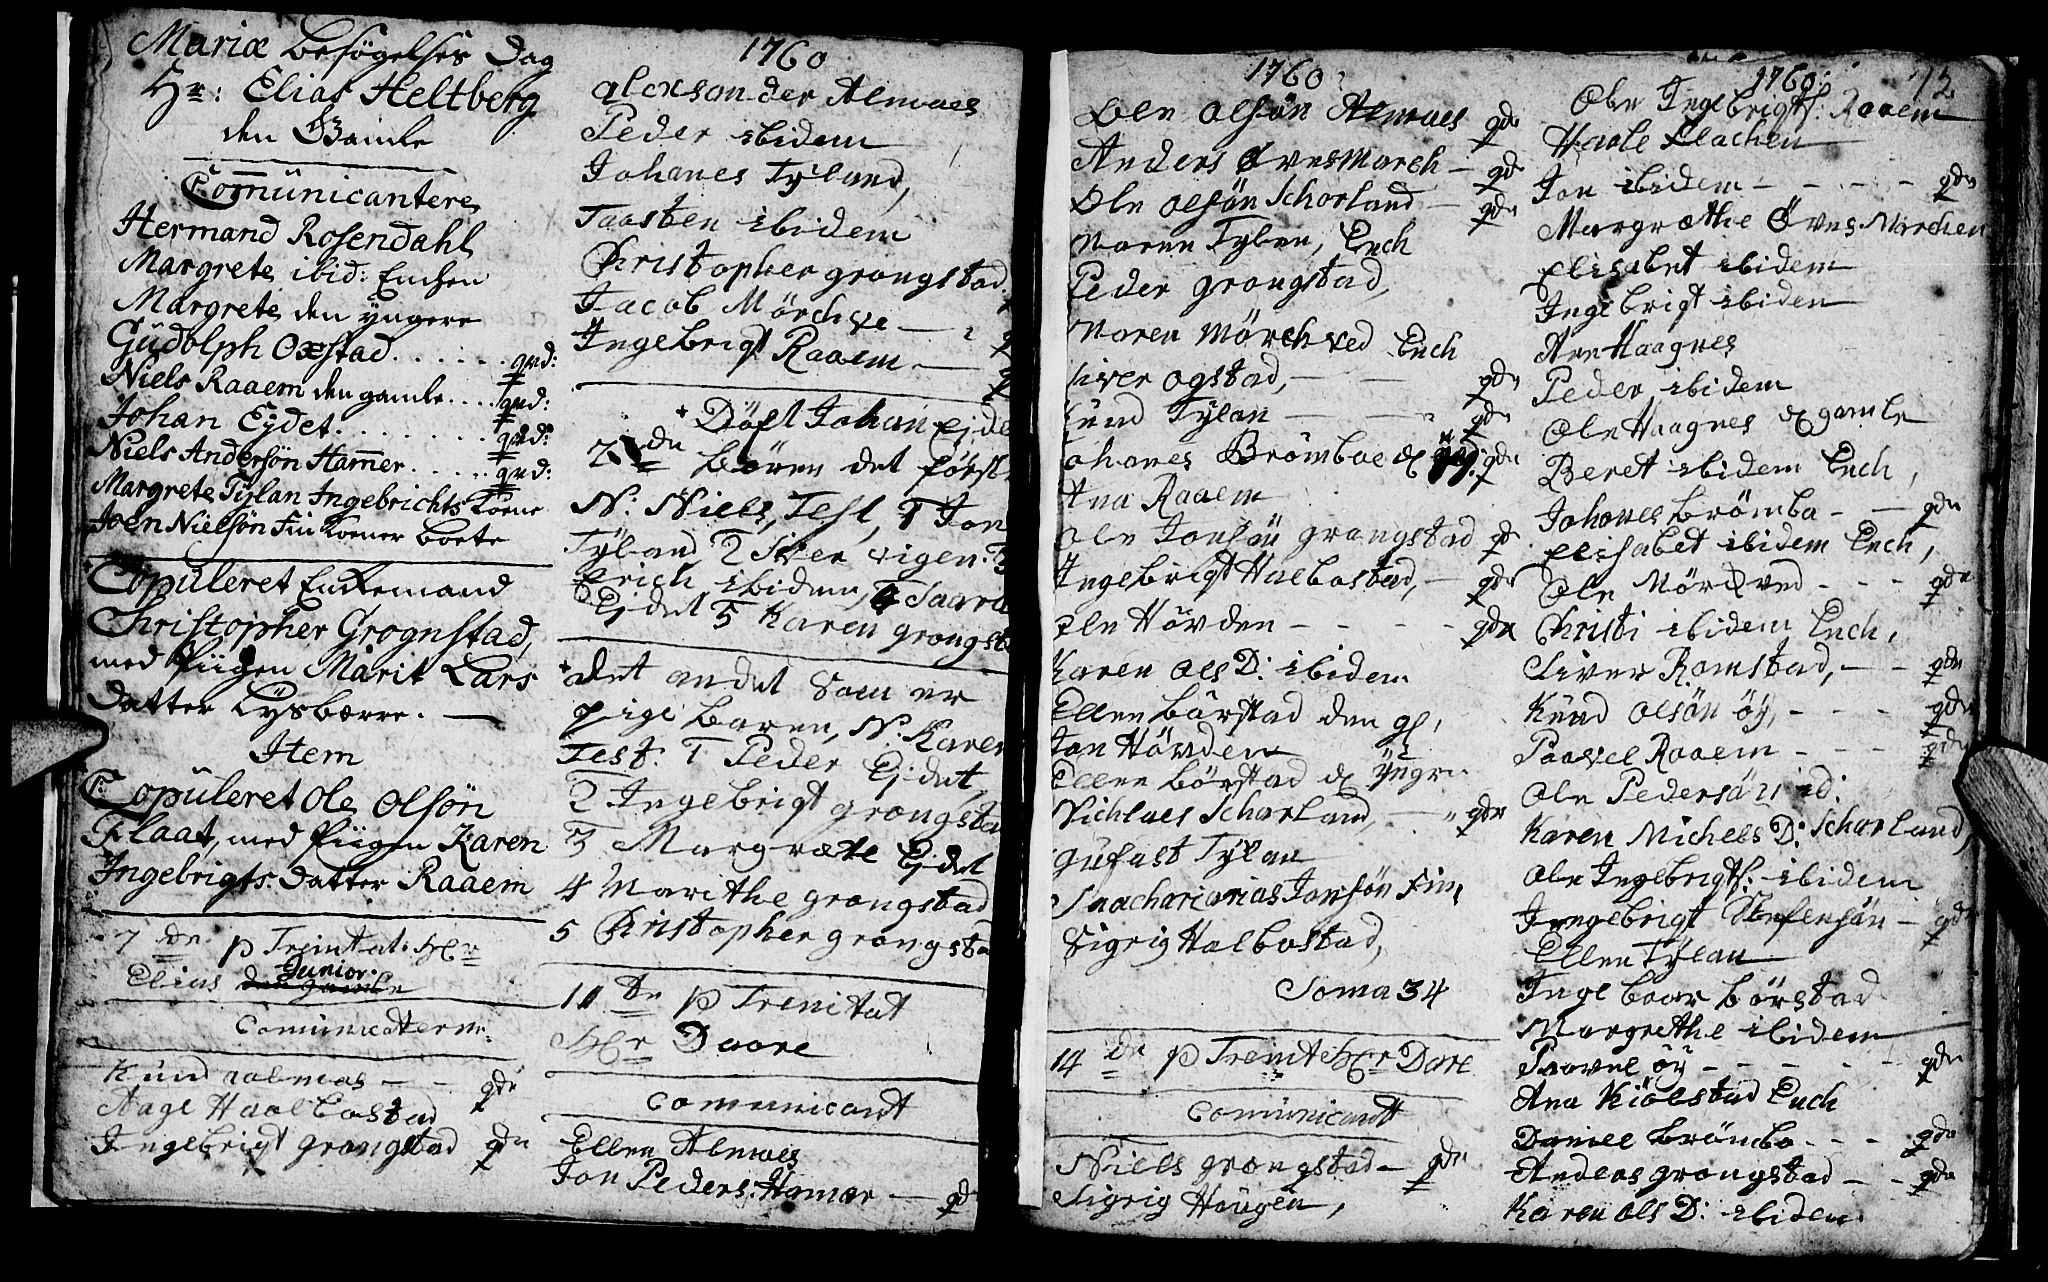 Mariæ besøgelses Dag
Hr: Elias Heltberg
den Gamle
Com̅unicantere
Hermand Rosendahl
Margrete ibid: Enchen
Margrete den yngere
Gudolph Oxstad . . . . . . qvd:
Niels Raaem den gamle . . . . qvd:
Johan Eydet . . . . . . . qvd:
Niels Andersøn Ham̅er . . . . . qvd:
Margrete Tÿlan Ingebrichts Kone
Joen Nielsøn Fin Koener boete
Copuleret Enkemand
Christopher Grognstad,
med Piigen Marit Lars
Datter Lysbærre. —
Item
Copuleret Ole Olsøn
Flaat, med Piigen Karen
Ingebrigts. Datter Raaem
7 de p Trinitat: Hr
Elias den gamle Junior.
Comunicatern:
Knud aalmos — — qdr
Aage Haalbostad
Ingebrigt grongstad qdr
1760
alexsander Almaes
Peder ibidem
Johanes Tyland,
Taasten ibidem
Christopher grongstad
Jacob Mörchve — q
Ingebrigt Raaem — q
Döft Johan Ejde
2 de bören det först
N: Niels, Test, 1 Jon
Tyland 2 Siver vigen: 3
Erich ibidem, 4 Taara
Ejdet 5 Karen grongst
det andet Soen er
pige baren, N: Karen
Test: 1 Peder Ejdet,
2 Ingebrigt grongsta
3 Margræte Ejdet
4 Marithe grongstad
5 Christopher grongsta
11 te p Trenitat
Hr Daare
Comunicant
Ellen Almoes
Jon Peders. Hamar — qd
1760
Ole Olsön Almaes qdr
Anders Övesmarch — qdr
Ole Olsön Schorland — qdr
Maren Tylen, Ench
Peder grongstad,
Maren Mörchved Ench
siver ogstad, — — qdr
Knud Tylan — — qdr
Johanes Brömboe qdr
Ana Raaem
Ole Jonsön grongstad qd
Ingebrigt Halbostad, — qdr
Ole Hövden - - - - qdr
Karen Ols D: ibidem
Ellen börstad den gl,
Jon Hövden
Ellen börstad d yngr
Nichlaes Scharland, — qdr
gufast Tylan
Saacharias Jonsön Fin,
Sigrig Halbostad,
Soma 34
14 de p Trenite Hr Dare
Comunicantt
Niels grongstad — qdr
Sigrig Haugen,
1760: 12
Ole Ingebrigts: Raaem
Haale Elachen
Jon ibidem — - - - qdr
Margræthe Öves Marchen
Elisabet ibidem
Ingebrigt ibidem
Ane Haagnes
Peder ibidem
Ole Haagnes d gamle
Beret ibidem Ench,
Johanes brömbo - — qdr
Elisabet ibidem Ench,
Ole Mörchved - - - qdr
Christi ibidem Ench,
Siver Romstad, - — qdr
Knud Olsön öy, - - - qdr
Paavel Raaem - - - qdr
Ole Pedersön id:
Karen Michels D: Scharland,
Ole Ingebrigts: ibidem
Ingebrigt Stefensön — qdr
Ellen Tylan
Inge baar börstad
Margrethe ibidem
Paavel öy - - - - - qdr
Ana Kiölstad Ench
Daniel brömbo - - - qdr
Anders grongstad — - qdr
Karen Ols D: ibidem